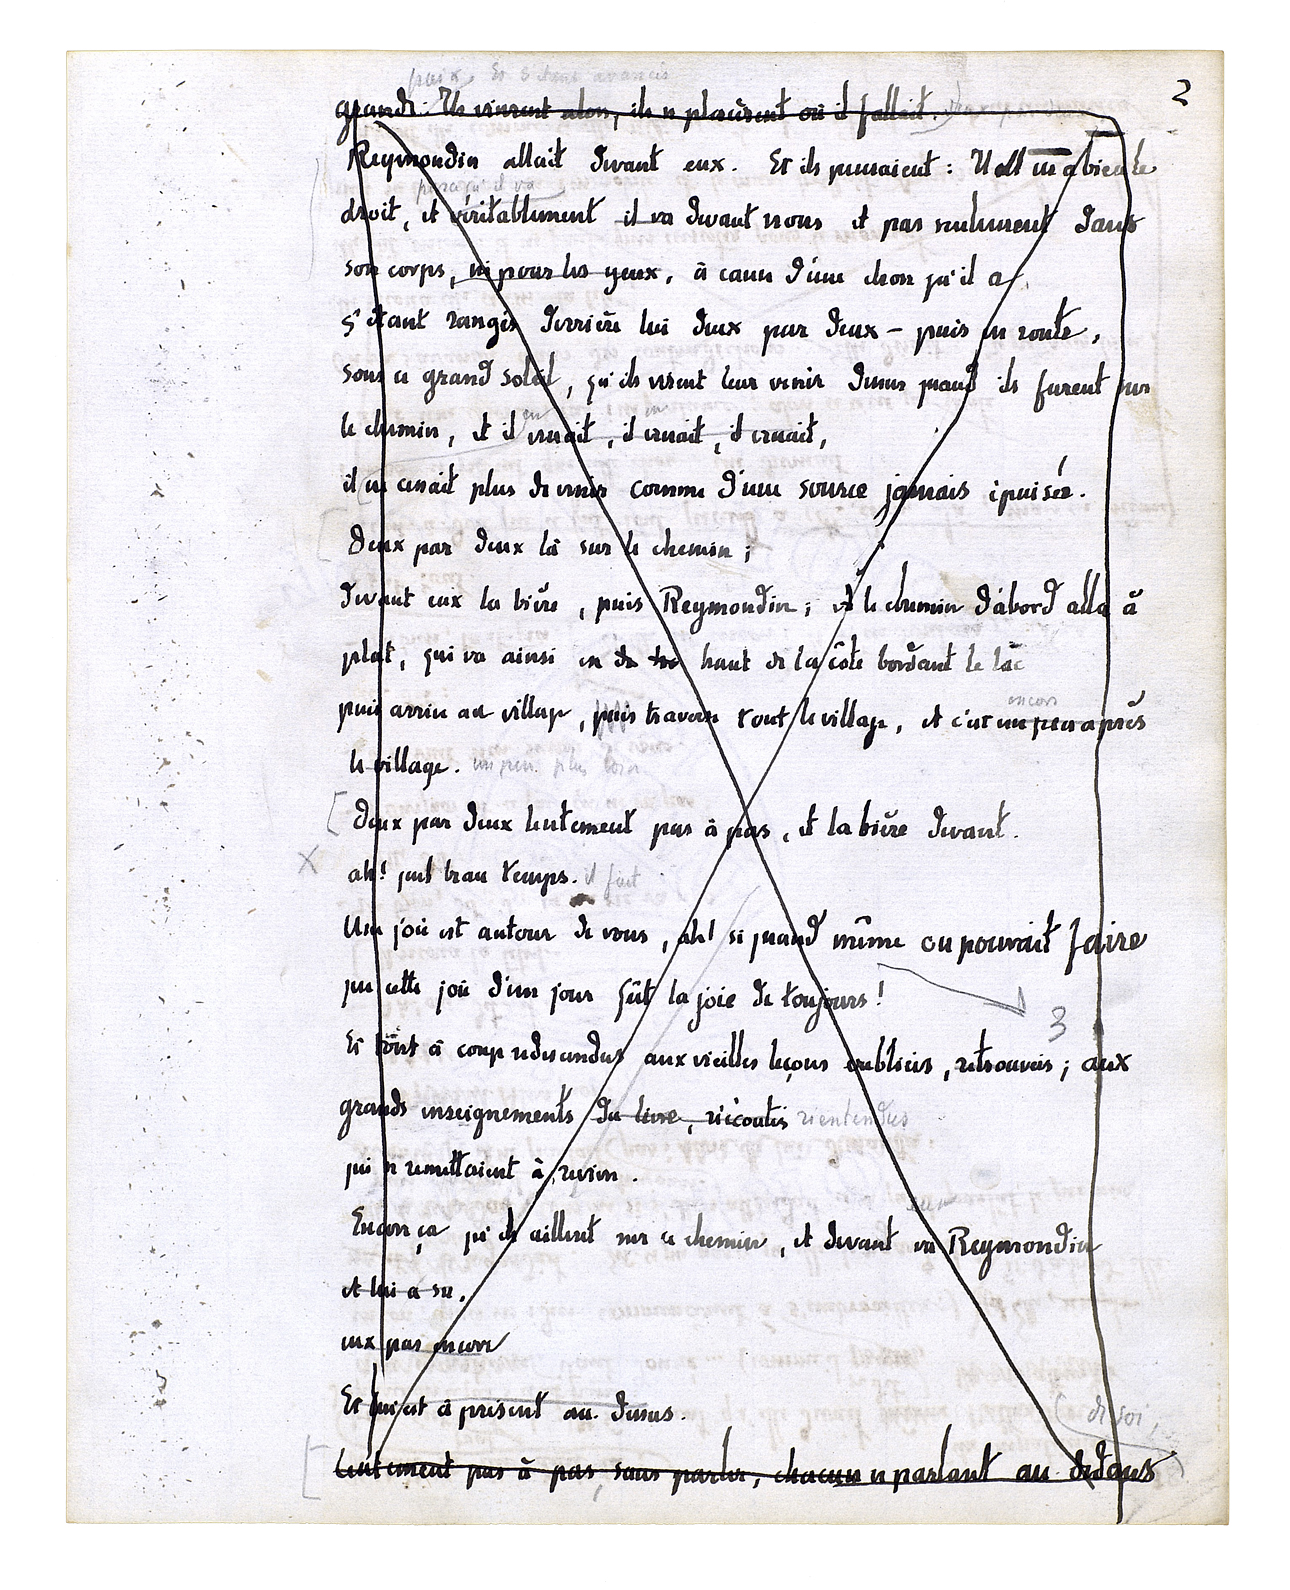 puis Et s'étant avancés
2
grands. Ils vinrent alors, ils se placèrent où il fallait.
Reymondin allait devant eux. Et ils pensaient : Il est
droit, et véritablement il va devant nous et pas seulement dans
parce qu'il va
son corps, ni pour les yeux, à cause d'une chose qu'il a
S'étant rangés derrière lui deux par deux – puis en route,
sous ce grand soleil, qu'ils virent leur venir dessus quand ils furent sur
le chemin, et il venait, il venait, il venait,
en en
il ne cessait plus de venir comme d'une source jamais épuisée.
Deux par deux là sur le chemin ;
devant eux la bière, puis Reymondin ; et le chemin d'abord alla à
plat, qui va ainsi en haut de la côte bordant le lac
puis arrive au village, puis traverse tout le village, et c'est un peu après
encore
le village. un peu plus loin
Deux par deux lentement pas à pas, et la bière devant.
X
ah! quel beau temps. il fait
Une joie est autour de vous, ah! si quand même on pouvait faire
que cette joie d'un jour fût la joie de toujours !
3
Et tout à coup redescendus aux vieilles leçons oubliées, retrouvées ; aux
grands enseignements du livre, réécoutés réentendus
qui se remettaient à revivre.
Encore ça qu'ils aillent sur ce chemin, et devant va Reymondin
et lui a su,
eux pas encore
Et lui est à présent au-dessus.
de soi,
lentement pas à pas, sans parler, chacun se parlant au dedans